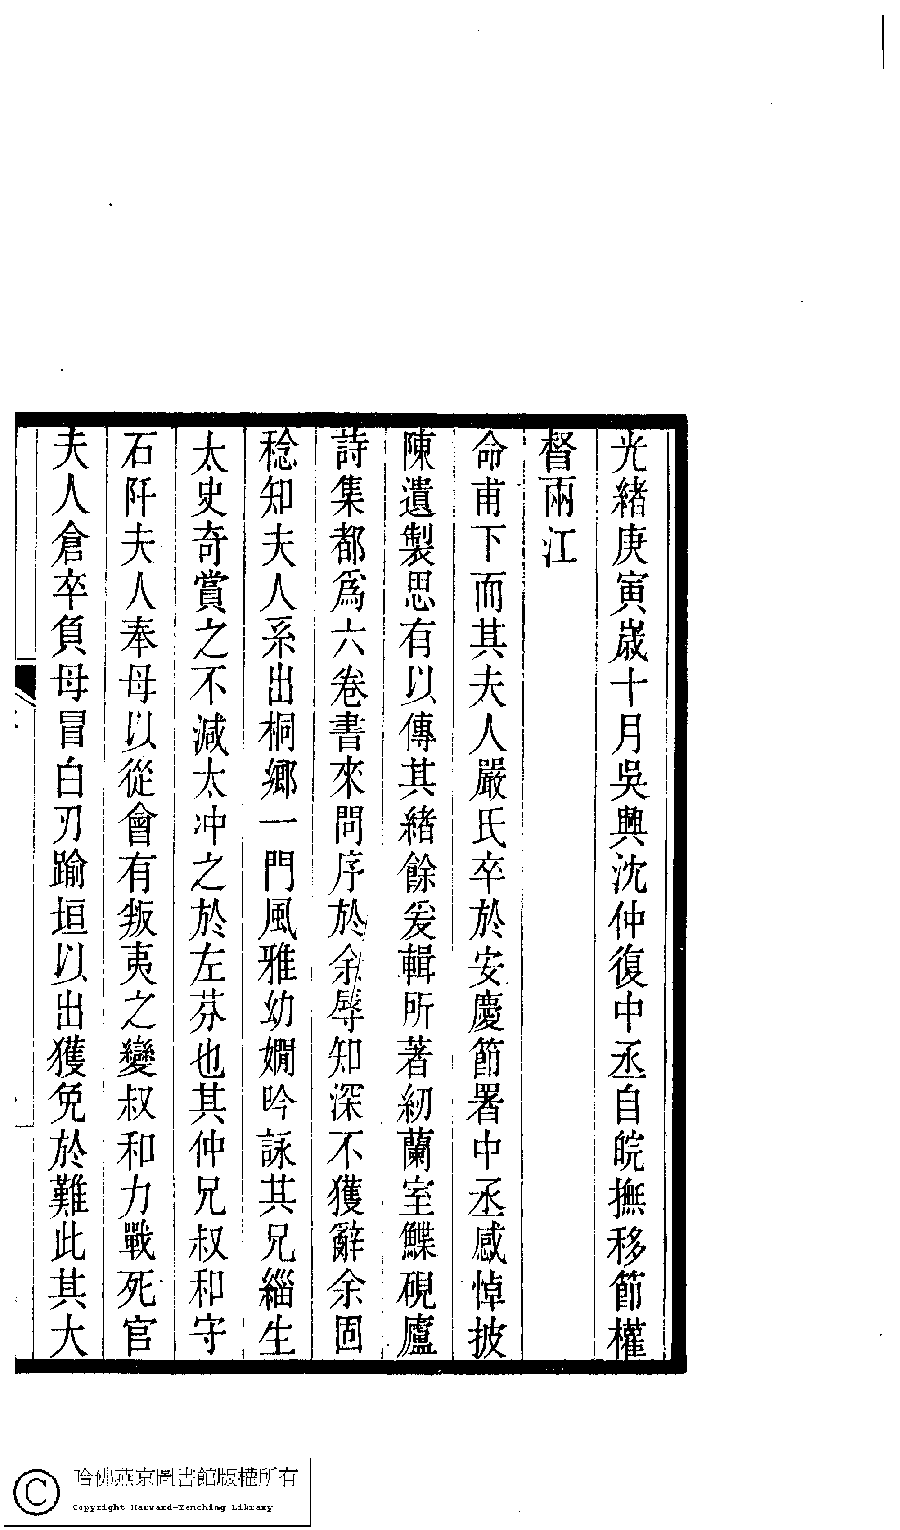 光緒庚寅歲十月吳興沈仲復中丞自皖撫移節權
督兩江
命甫下而其夫人嚴氏卒於安慶節署中丞感悼披
陳遺製思有以傳其緒餘爰輯所著紉蘭室鰈硯廬
詩集都爲六卷書來問序於余辱知深不獲辭余固
稔知夫人系出桐鄉一門風雅幼嫺吟詠其兄緇生
太史奇賞之不減太冲之於左芬也其仲兄叔和守
石阡夫人奉母以從會有叛夷之變叔和力戰死官
夫人倉卒負母冒白刃踰垣以出獲免於難此其大
哈佛燕京圖書館版權所有
Copyright Harvard-Yenching Library